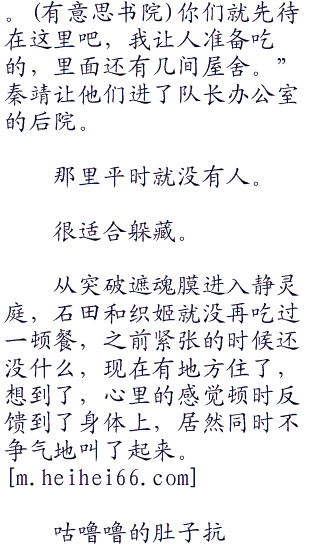 。(有意思书院)你们就先待
在这里吧，我让人准备吃
的，里面还有几间屋舍。”
秦靖让他们进了队长办公室
的后院。
那里平时就没有人。
很适合躲藏。
从突破遮魂膜进入静灵
庭，石田和织姬就没再吃过
一顿餐，之前紧张的时候还
没什么，现在有地方住了，
想到了，心里的感觉顿时反
馈到了身体上，居然同时不
争气地叫了起来。
[m.heihei66.com]
咕噜噜的肚子抗